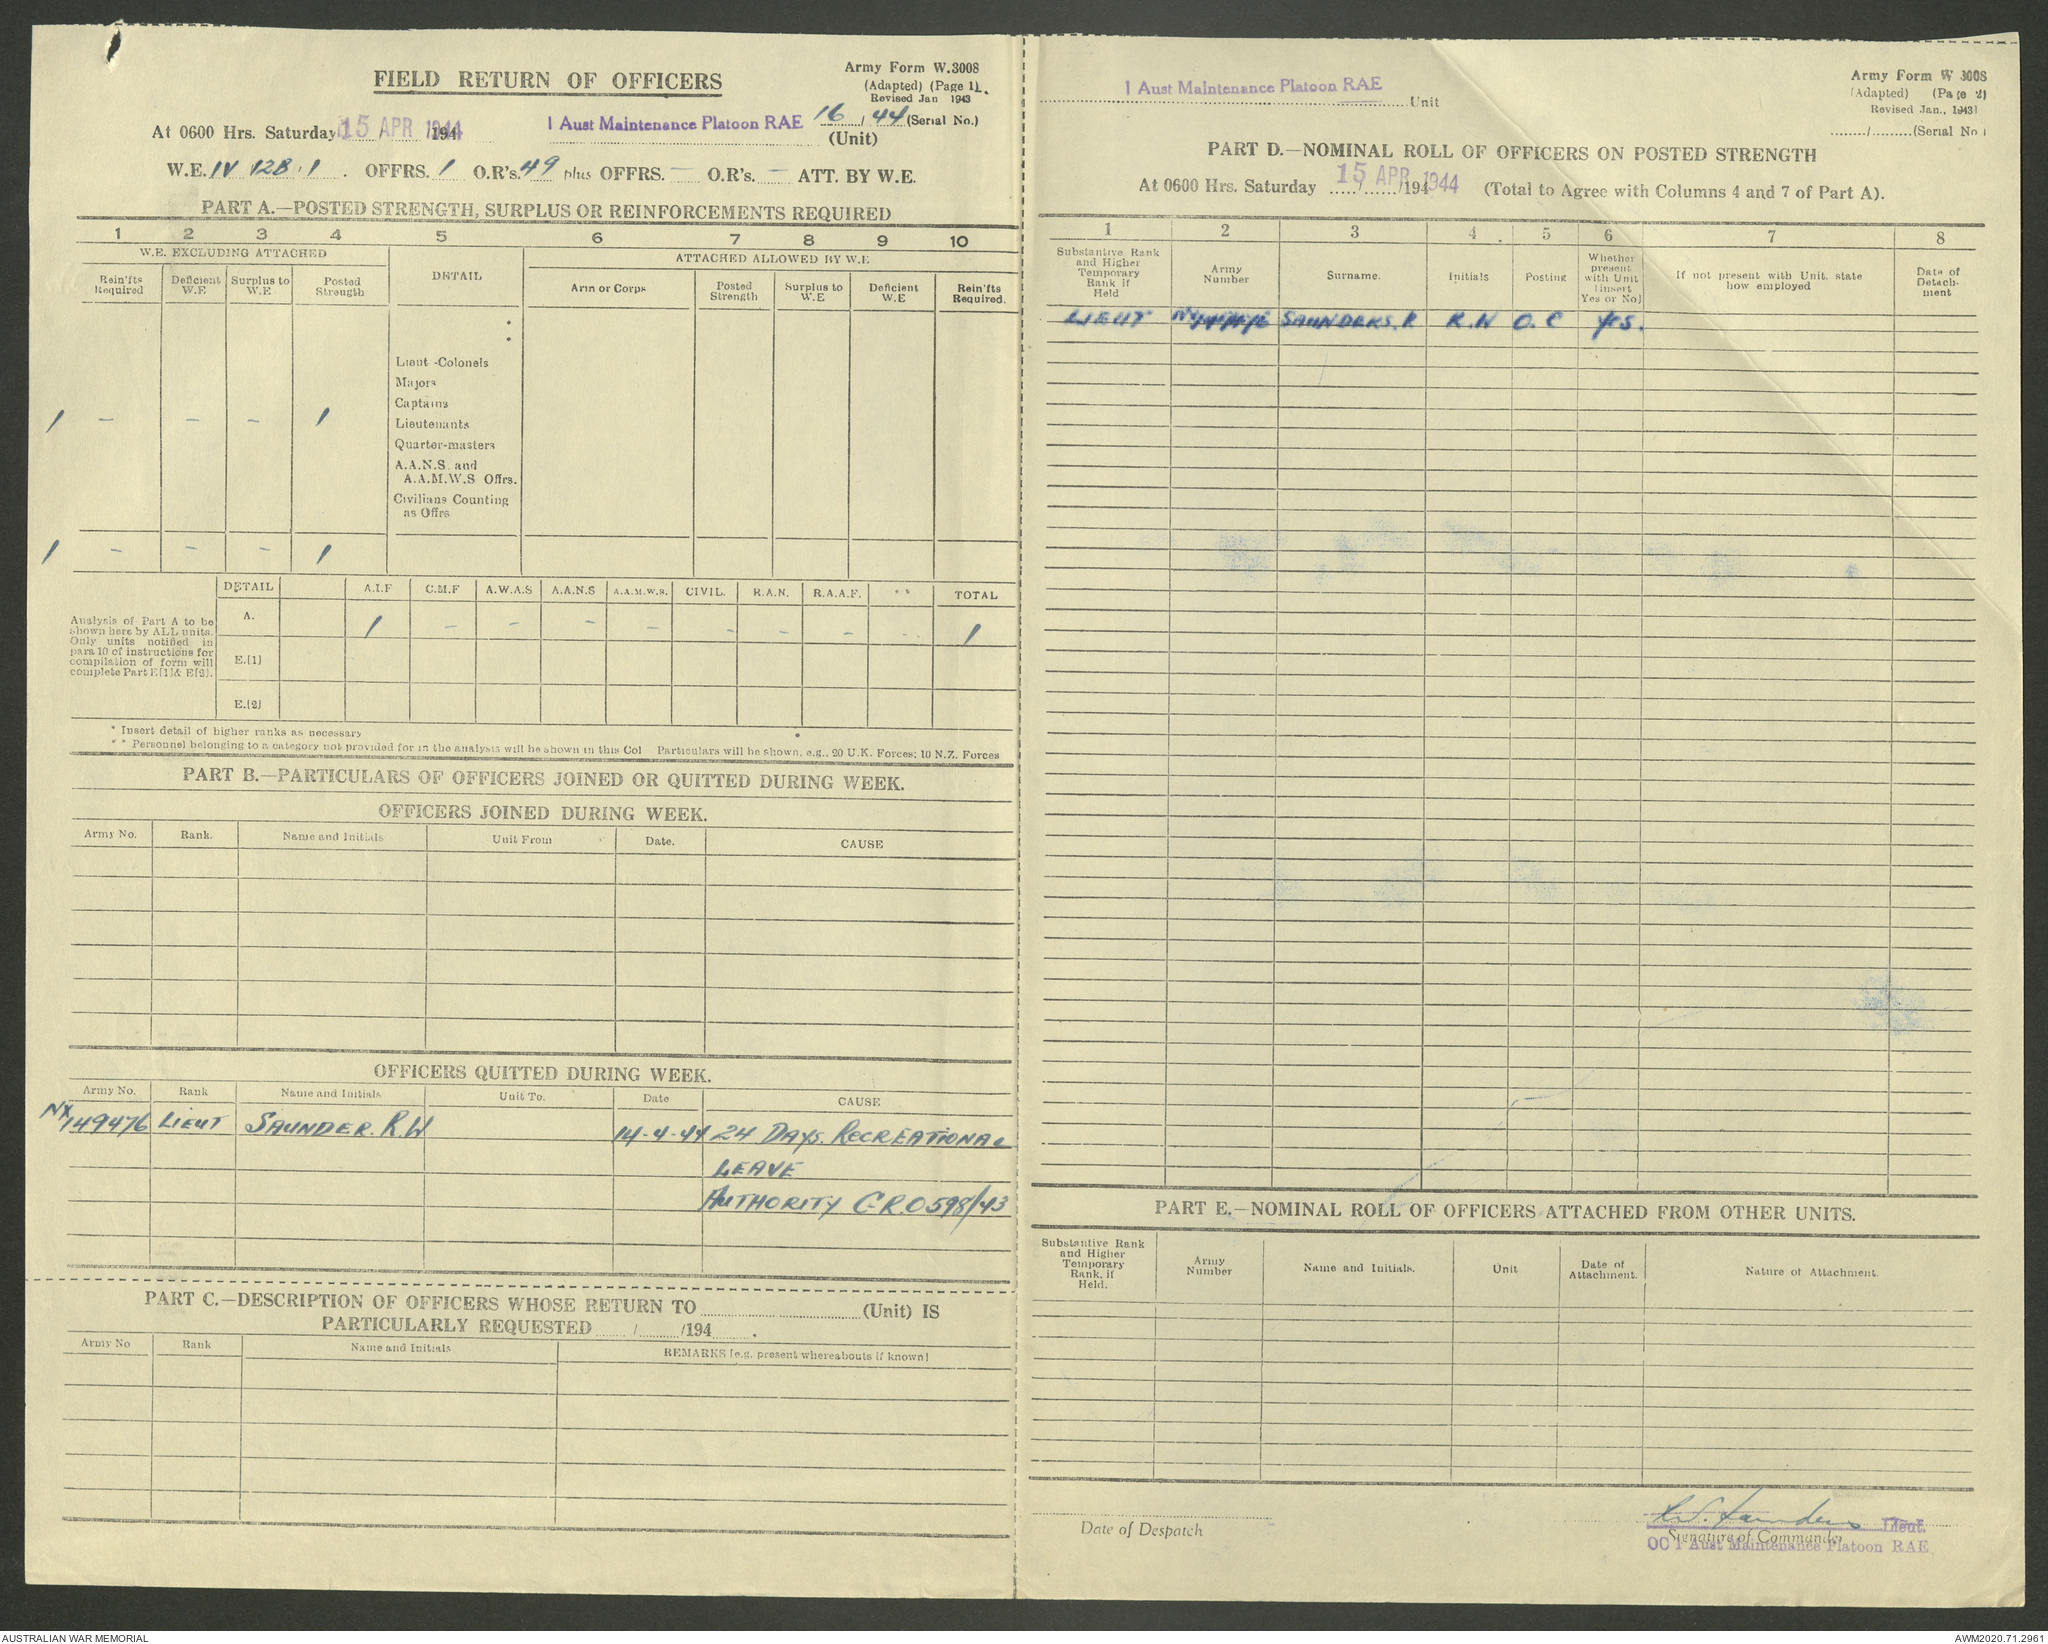 FIELD RETURN OF OFFICERS
Army Form W.3008
(Adapted) (Page 1).
Revised Jan 1943
At 0600 Hrs. Saturday 15 APR 1944 /194
1 Aust Maintenance Platoon RAE
16 / 44 (Serial No.)
(Unit)
W.E. IV 12B.1 . OFFRS. 1 O.R's. 49 plus OFFRS. — O.R's. — ATT. BY W.E.
PART A.—POSTED STRENGTH, SURPLUS OR REINFORCEMENTS REQUIRED
1 2 3 4 5 6 7 8 9 10
W.E. EXCLUDING ATTACHED
DETAIL
ATTACHED ALLOWED BY W.E
Rein'fts Required
Deficient W.E
Surplus to W.E
Posted Strength
Arm or Corps
Posted Strength
Surplus to W.E
Deficient W.E
Rein'fts Required.
Lieut -Colonels
Majors
Captains
1 – – – 1 Lieutenants
Quarter-masters
A.A.N.S. and
A.A.M.W.S Offrs.
Civilians Counting
as Offrs
1 – – – 1
DETAIL A.I.F C.M.F A.W.A.S A.A.N.S A.A.M.W.S. CIVIL. R.A.N. R.A.A.F. ** TOTAL
A. 1 – – – – – – – – 1
E.[1]
E.[2]
Analysis of Part A to be
shown here by ALL units.
Only units notified in
para 10 of instructions for
compilation of form will
complete Part E[1]& E[2].
* Insert detail of higher ranks as necessary
** Personnel belonging to a category not provided for in the analysis will be shown in this Col Particulars will be shown, e.g., 20 U.K. Forces; 10 N.Z. Forces
PART B.—PARTICULARS OF OFFICERS JOINED OR QUITTED DURING WEEK.
OFFICERS JOINED DURING WEEK.
Army No. Rank. Name and Initials Unit From Date. CAUSE
OFFICERS QUITTED DURING WEEK.
Army No. Rank Name and Initials Unit To. Date CAUSE
NX149476 LIEUT SAUNDER. R.W 14-4-44 24 DAYS. RECREATIONAL
LEAVE
AUTHORITY G.R.O 598/43
PART C.—DESCRIPTION OF OFFICERS WHOSE RETURN TO (Unit) IS
PARTICULARLY REQUESTED / /194 .
Army No Rank Name and Initials REMARKS [e.g. present whereabouts if known]
1 Aust Maintenance Platoon RAE
Unit
Army Form W 3008
(Adapted) (Page 2)
Revised Jan., 1943]
/ (Serial No )
PART D.—NOMINAL ROLL OF OFFICERS ON POSTED STRENGTH
At 0600 Hrs. Saturday 15 APR 1944 /194 (Total to Agree with Columns 4 and 7 of Part A).
1 2 3 4 5 6 7 8
Substantive Rank and Higher Temporary Rank if Held
Army Number
Surname.
Initials
Posting
Whether present with Unit [insert Yes or No]
If not present with Unit, state how employed
Date of Detachment
LIEUT SAUNDERS. R R.W O.C Yes.
PART E.—NOMINAL ROLL OF OFFICERS ATTACHED FROM OTHER UNITS.
Substantive Rank and Higher Temporary Rank, if Held.
Army Number
Name and Initials.
Unit
Date of Attachment.
Nature of Attachment.
Date of Despatch
R.W. Saunders Lieut.
Signature of Commander
OC 1 Aust Maintenance Platoon RAE
AUSTRALIAN WAR MEMORIAL
AWM2020.71.2961